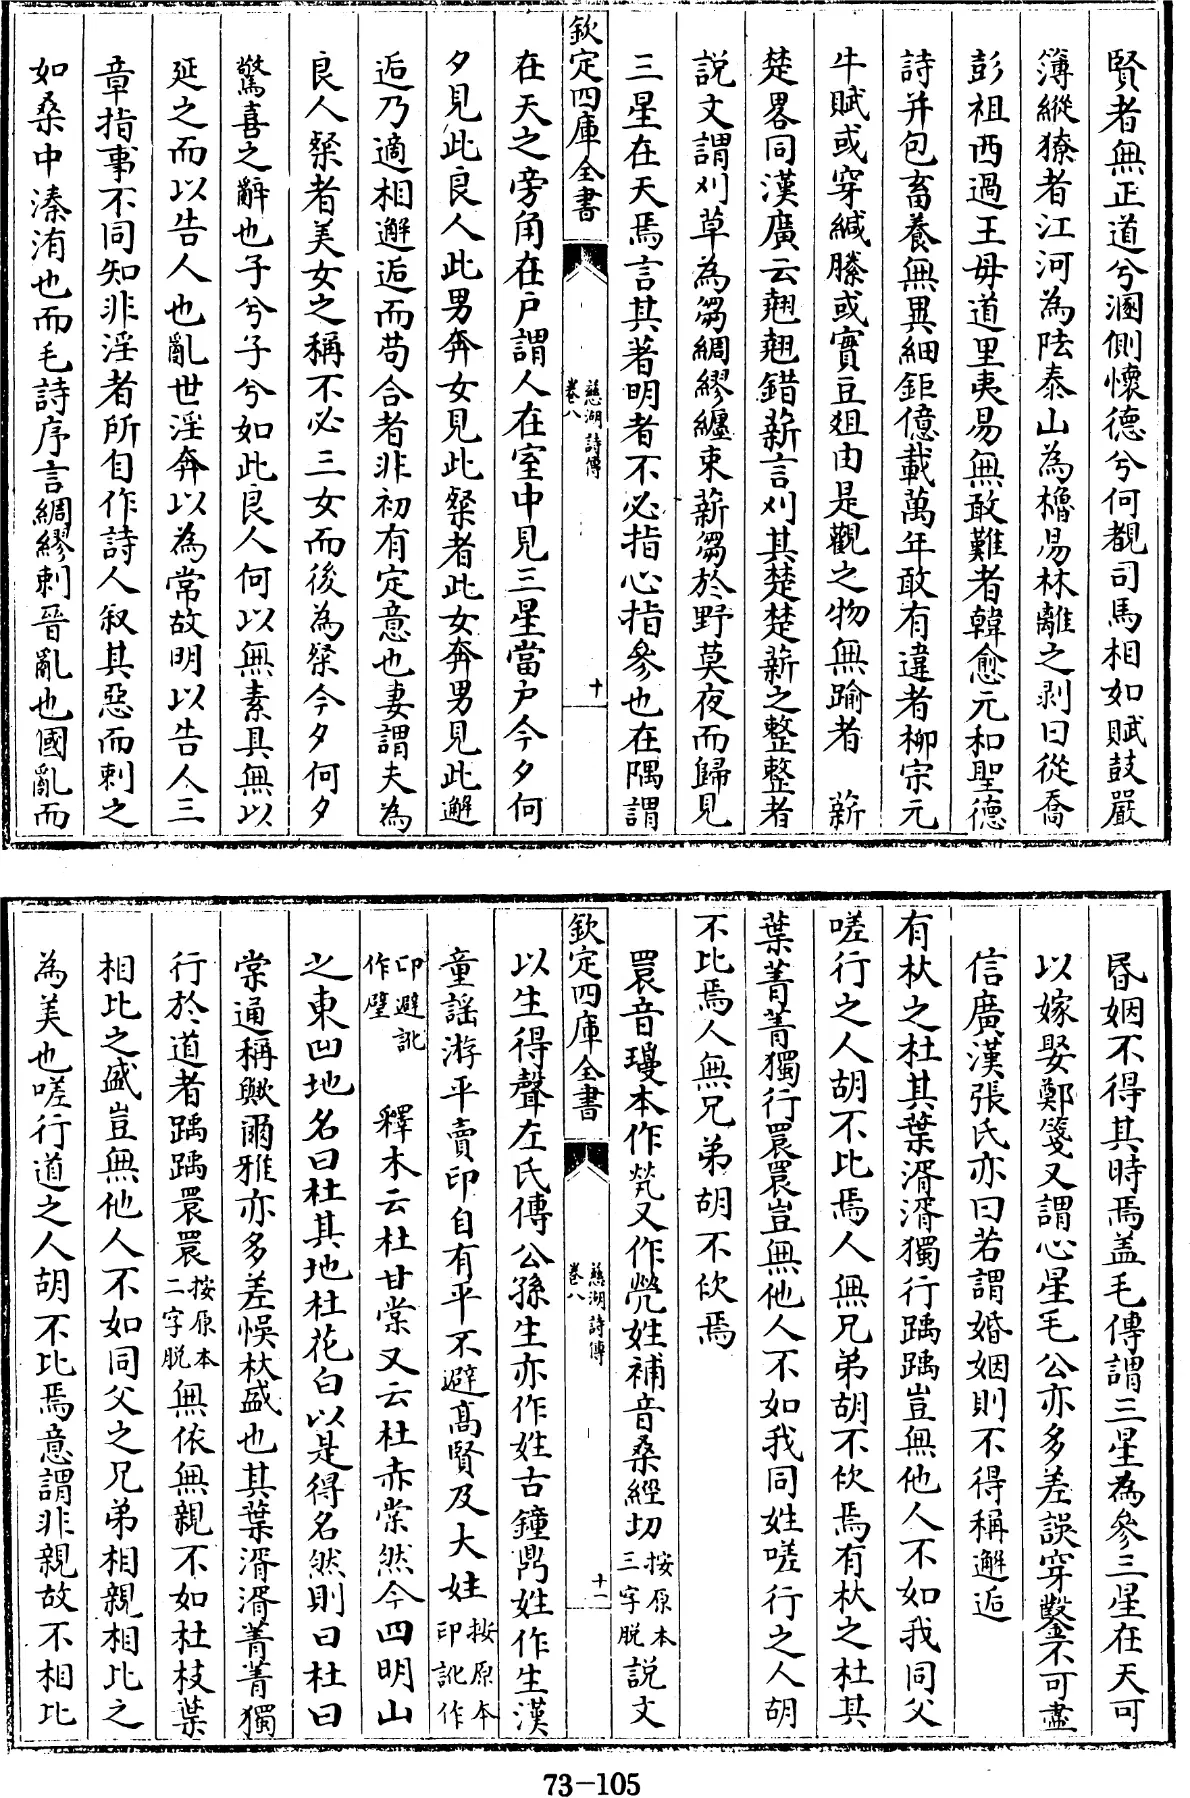 賢者無正道兮溷側懷德兮何覩司馬相如賦鼓嚴
簿縱獠者江河為阹泰山為櫓易林離之剥曰從喬
彭祖西過王母道里夷易無敢難者韓愈元和聖德
詩并包畜養無異細鉅億載萬年敢有違者柳宗元
牛賦或穿緘縢或實豆爼由是觀之物無踰者　薪
楚畧同漢廣云翹翹錯薪言刈其楚楚薪之整整者
説文謂刈草為芻綢繆纏束薪芻於野莫夜而歸見
三星在天焉言其著明者不必指心指參也在隅謂
欽定四庫全書
慈湖詩傳
卷八
十
在天之旁角在戸謂人在室中見三星當戸今夕何
夕見此良人此男奔女見此粲者此女奔男見此邂
逅乃適相邂逅而苟合者非初有定意也妻謂夫為
良人粲者美女之稱不必三女而後為粲今夕何夕
驚喜之辭也子兮子兮如此良人何以無素具無以
延之而以告人也亂世淫奔以為常故明以告人三
章指事不同知非淫者所自作詩人叙其惡而刺之
如桑中溱洧也而毛詩序言綢繆刺晉亂也國亂而
昏姻不得其時焉盖毛傳謂三星為參三星在天可
以嫁娶鄭箋又謂心星毛公亦多差誤穿鑿不可盡
信廣漢張氏亦曰若謂婚姻則不得稱邂逅
有杕之杜其葉湑湑獨行踽踽豈無他人不如我同父
嗟行之人胡不比焉人無兄弟胡不佽焉有杕之杜其
葉菁菁獨行睘睘豈無他人不如我同姓嗟行之人胡
不比焉人無兄弟胡不佽焉
睘音瓊本作煢又作㷀姓補音桑經切按原本三字脱説文
欽定四庫全書
慈湖詩傳
卷八
十一
以生得聲左氏傳公孫生亦作姓古鐘鼎姓作生漢
童謡游平賣印自有平不避髙賢及大姓按原本印訛作
卬避訛作璧　釋木云杜甘棠又云杜赤棠然今四明山
之東凹地名曰杜其地杜花白以是得名然則曰杜曰
棠通稱歟爾雅亦多差悞杕盛也其葉湑湑菁菁獨
行於道者踽踽睘睘按原本二字脱無依無親不如杜枝葉
相比之盛豈無他人不如同父之兄弟相親相比之
為美也嗟行道之人胡不比焉意謂非親故不相比
73-105